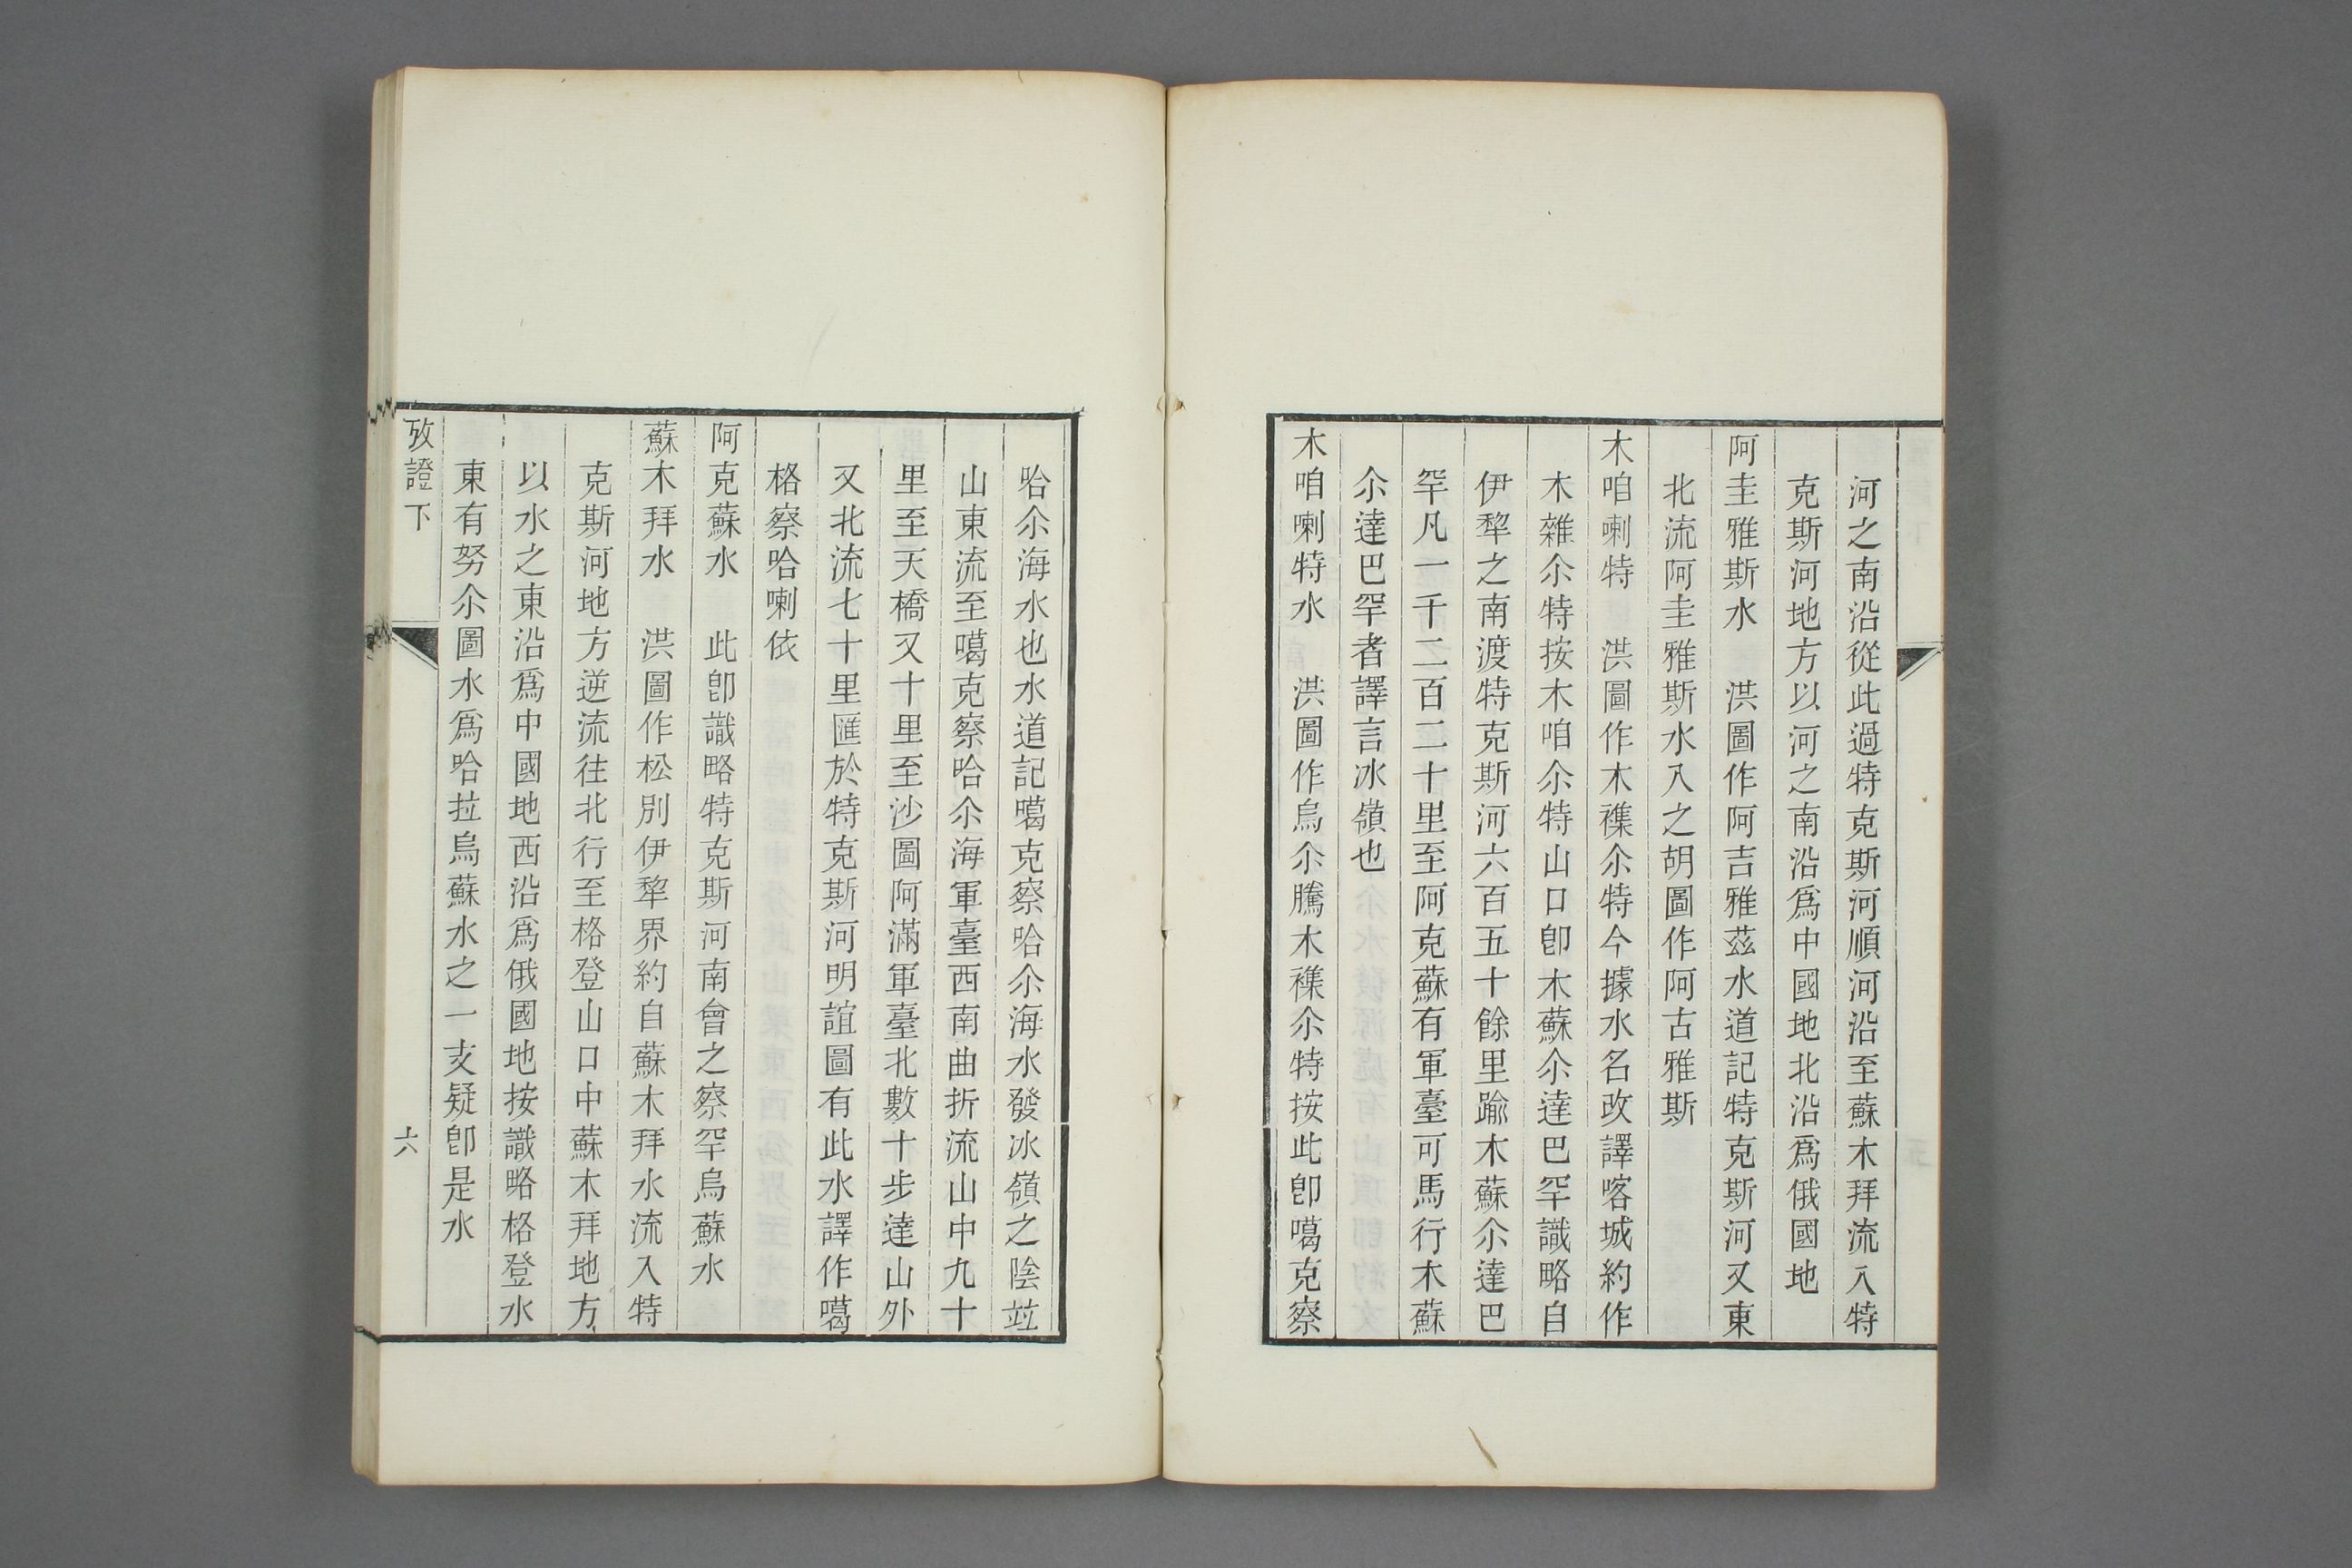 河之南沿從此過特克斯河順河沿至蘇木拜流入特
克斯河地方以河之南沿爲中國地北沿爲俄國地
阿圭雅斯水　洪圖作阿吉雅茲水道記特克斯河又東
北流阿圭雅斯水入之胡圖作阿古雅斯
木咱喇特　洪圖作木襍尒特今據水名改譯喀城約作
木雜尒特按木咱尒特山口卽木蘇尒達巴罕識略自
伊犂之南渡特克斯河六百五十餘里踰木蘇尒達巴
罕凡一千二百二十里至阿克蘇有軍臺可馬行木蘇
尒達巴罕者譯言冰嶺也
木咱喇特水　洪圖作烏尒騰木襍尒特按此卽噶克察
哈尒海水也水道記噶克察哈尒海水發冰嶺之陰竝
山東流至噶克察哈尒海軍臺西南曲折流山中九十
里至天橋又十里至沙圖阿滿軍臺北數十步達山外
又北流七十里匯於特克斯河明誼圖有此水譯作噶
格察哈喇依
阿克蘇水　此卽識略特克斯河南會之察罕烏蘇水
蘇木拜水　洪圖作松別伊犂界約自蘇木拜水流入特
克斯河地方逆流往北行至格登山口中蘇木拜地方
以水之東沿爲中國地西沿爲俄國地按識略格登水
東有努尒圖水爲哈拉烏蘇水之一支疑卽是水
攷證下
六